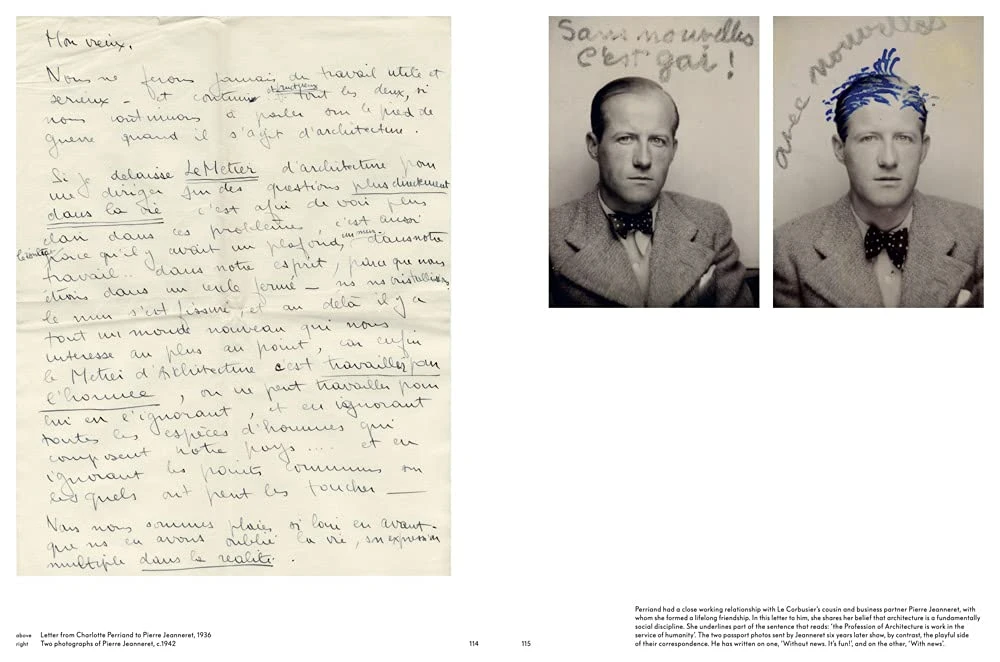 Mon vieux,
Nous ne ferons jamais du travail utile et
serieux - et constructif tout les deux, si
nous continuons à parler sur le pied de
guerre quand il s'agit d'architecture.
Si je delaisse Le Métier d'architecture pour
me diriger sur des questions plus directement
dans la vie c'est afin de voir plus
clair dans ces problèmes, c'est aussi
parce qu'il y avait un plafond, un mur dans notre
travail.. dans notre esprit, parce que nous
étions dans un
le mur s'est fissuré, et au delà il y a
tout un monde nouveau qui nous
interesse au plus au point, car enfin
le Metier d'Architecture c'est travailler pour
l'homme, on ne peut travailler pour
lui en l'ignorant, et en ignorant
toutes les espèces d'hommes qui
composent notre pays .... et en
ignorant les points communs sur
lesquels on peut les toucher —
Nous nous sommes placés si loin en avant
que ns en avons oublié la vie, son expression
multiple dans la realité.
Sans nouvelles
C'est gai !
avec nouvelles
above Letter from Charlotte Perriand to Pierre Jeanneret, 1936
right Two photographs of Pierre Jeanneret, c.1942
114
115
Perriand had a close working relationship with Le Corbusier's cousin and business partner Pierre Jeanneret, with
whom she formed a lifelong friendship. In this letter to him, she shares her belief that architecture is a fundamentally
social discipline. She underlines part of the sentence that reads: 'the Profession of Architecture is work in the
service of humanity'. The two passport photos sent by Jeanneret six years later show, by contrast, the playful side
of their correspondence. He has written on one, 'Without news. It's fun!', and on the other, 'With news'.